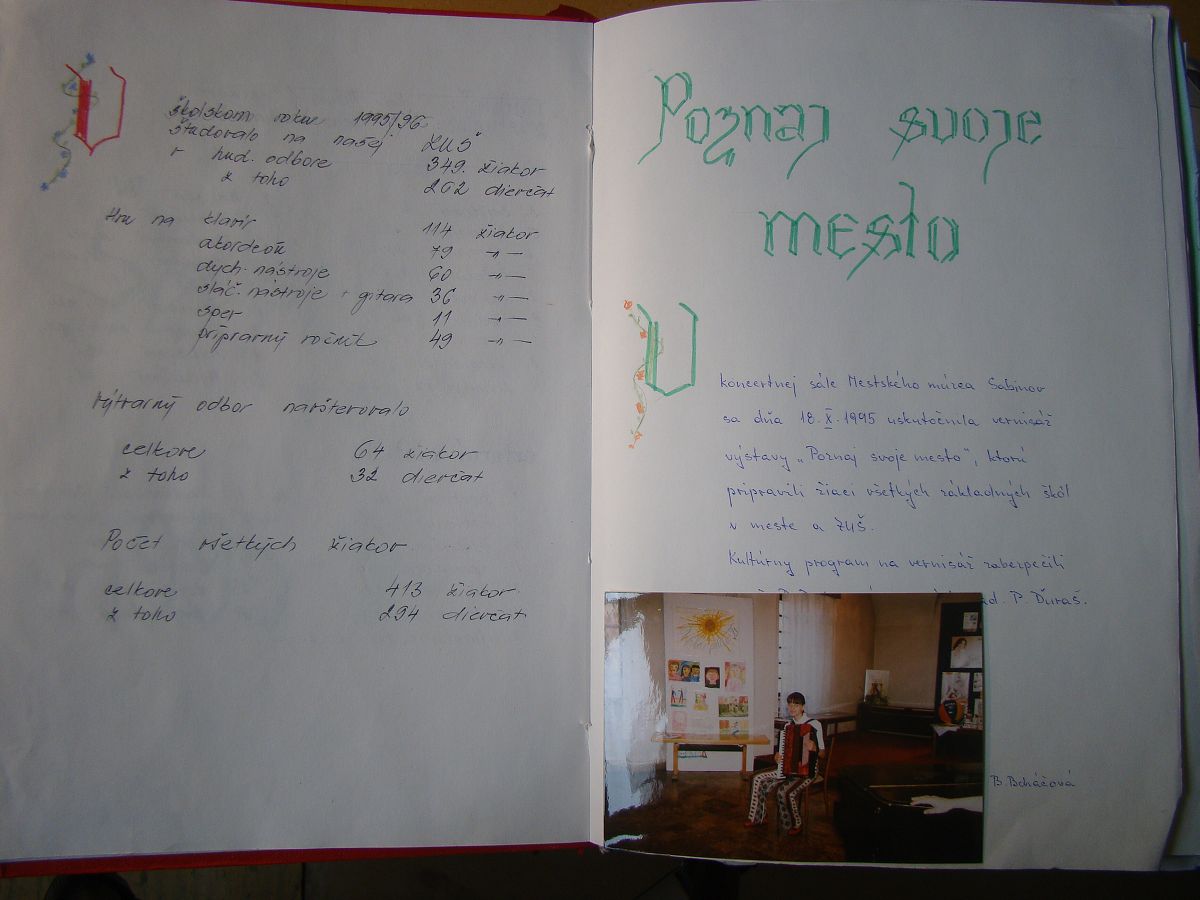 V školskom roku 1995/96
študovalo na našej ZUŠ
v hud. odbore 349. žiakov
z toho 262 dievčat
Hru na klavír 114 žiakov
akordeón 79 -〃-
dych. nástroje 60 -〃-
sláč. nástroje + gitara 36 -〃-
spev 11 -〃-
prípravný ročník 49 -〃-
výtvarný odbor navštevovalo
celkove 64 žiakov
z toho 32 dievčat
Počet všetkých žiakov
celkove 413 žiakov
z toho 294 dievčat
Poznaj svoje
mesto
V koncertnej sále Mestského múzea Sabinov
sa dňa 18.X.1995 uskutočnila vernisáž
výstavy „Poznaj svoje mesto", ktorú
pripravili žiaci všetkých základných škôl
v meste a ZUŠ.
Kultúrny program na vernisáž zabezpečili
P. Ďuraš.
B